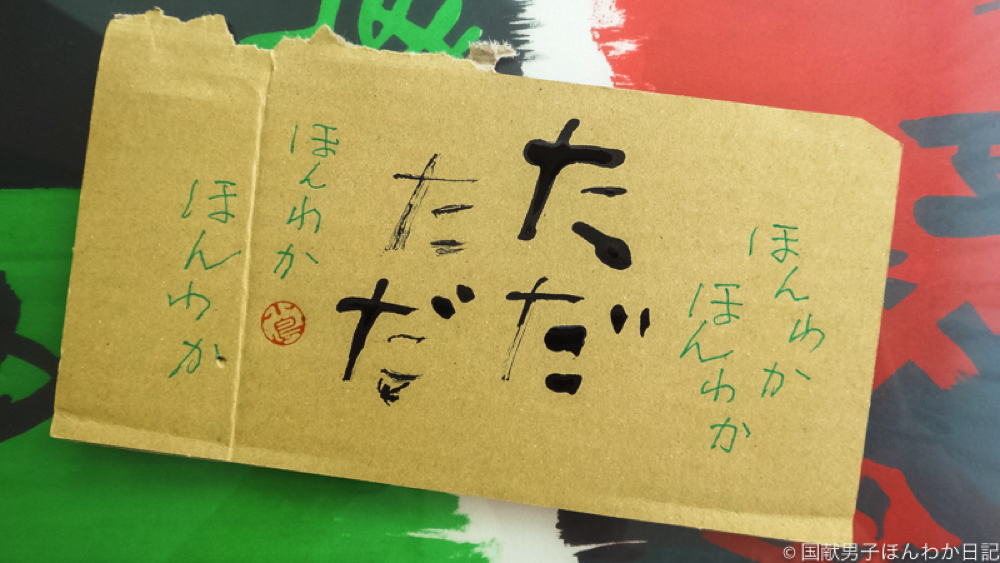 ほんわか
ほんわか
ただ
ただ
ほんわか
ほんわか
© 国献男子ほんわか日記